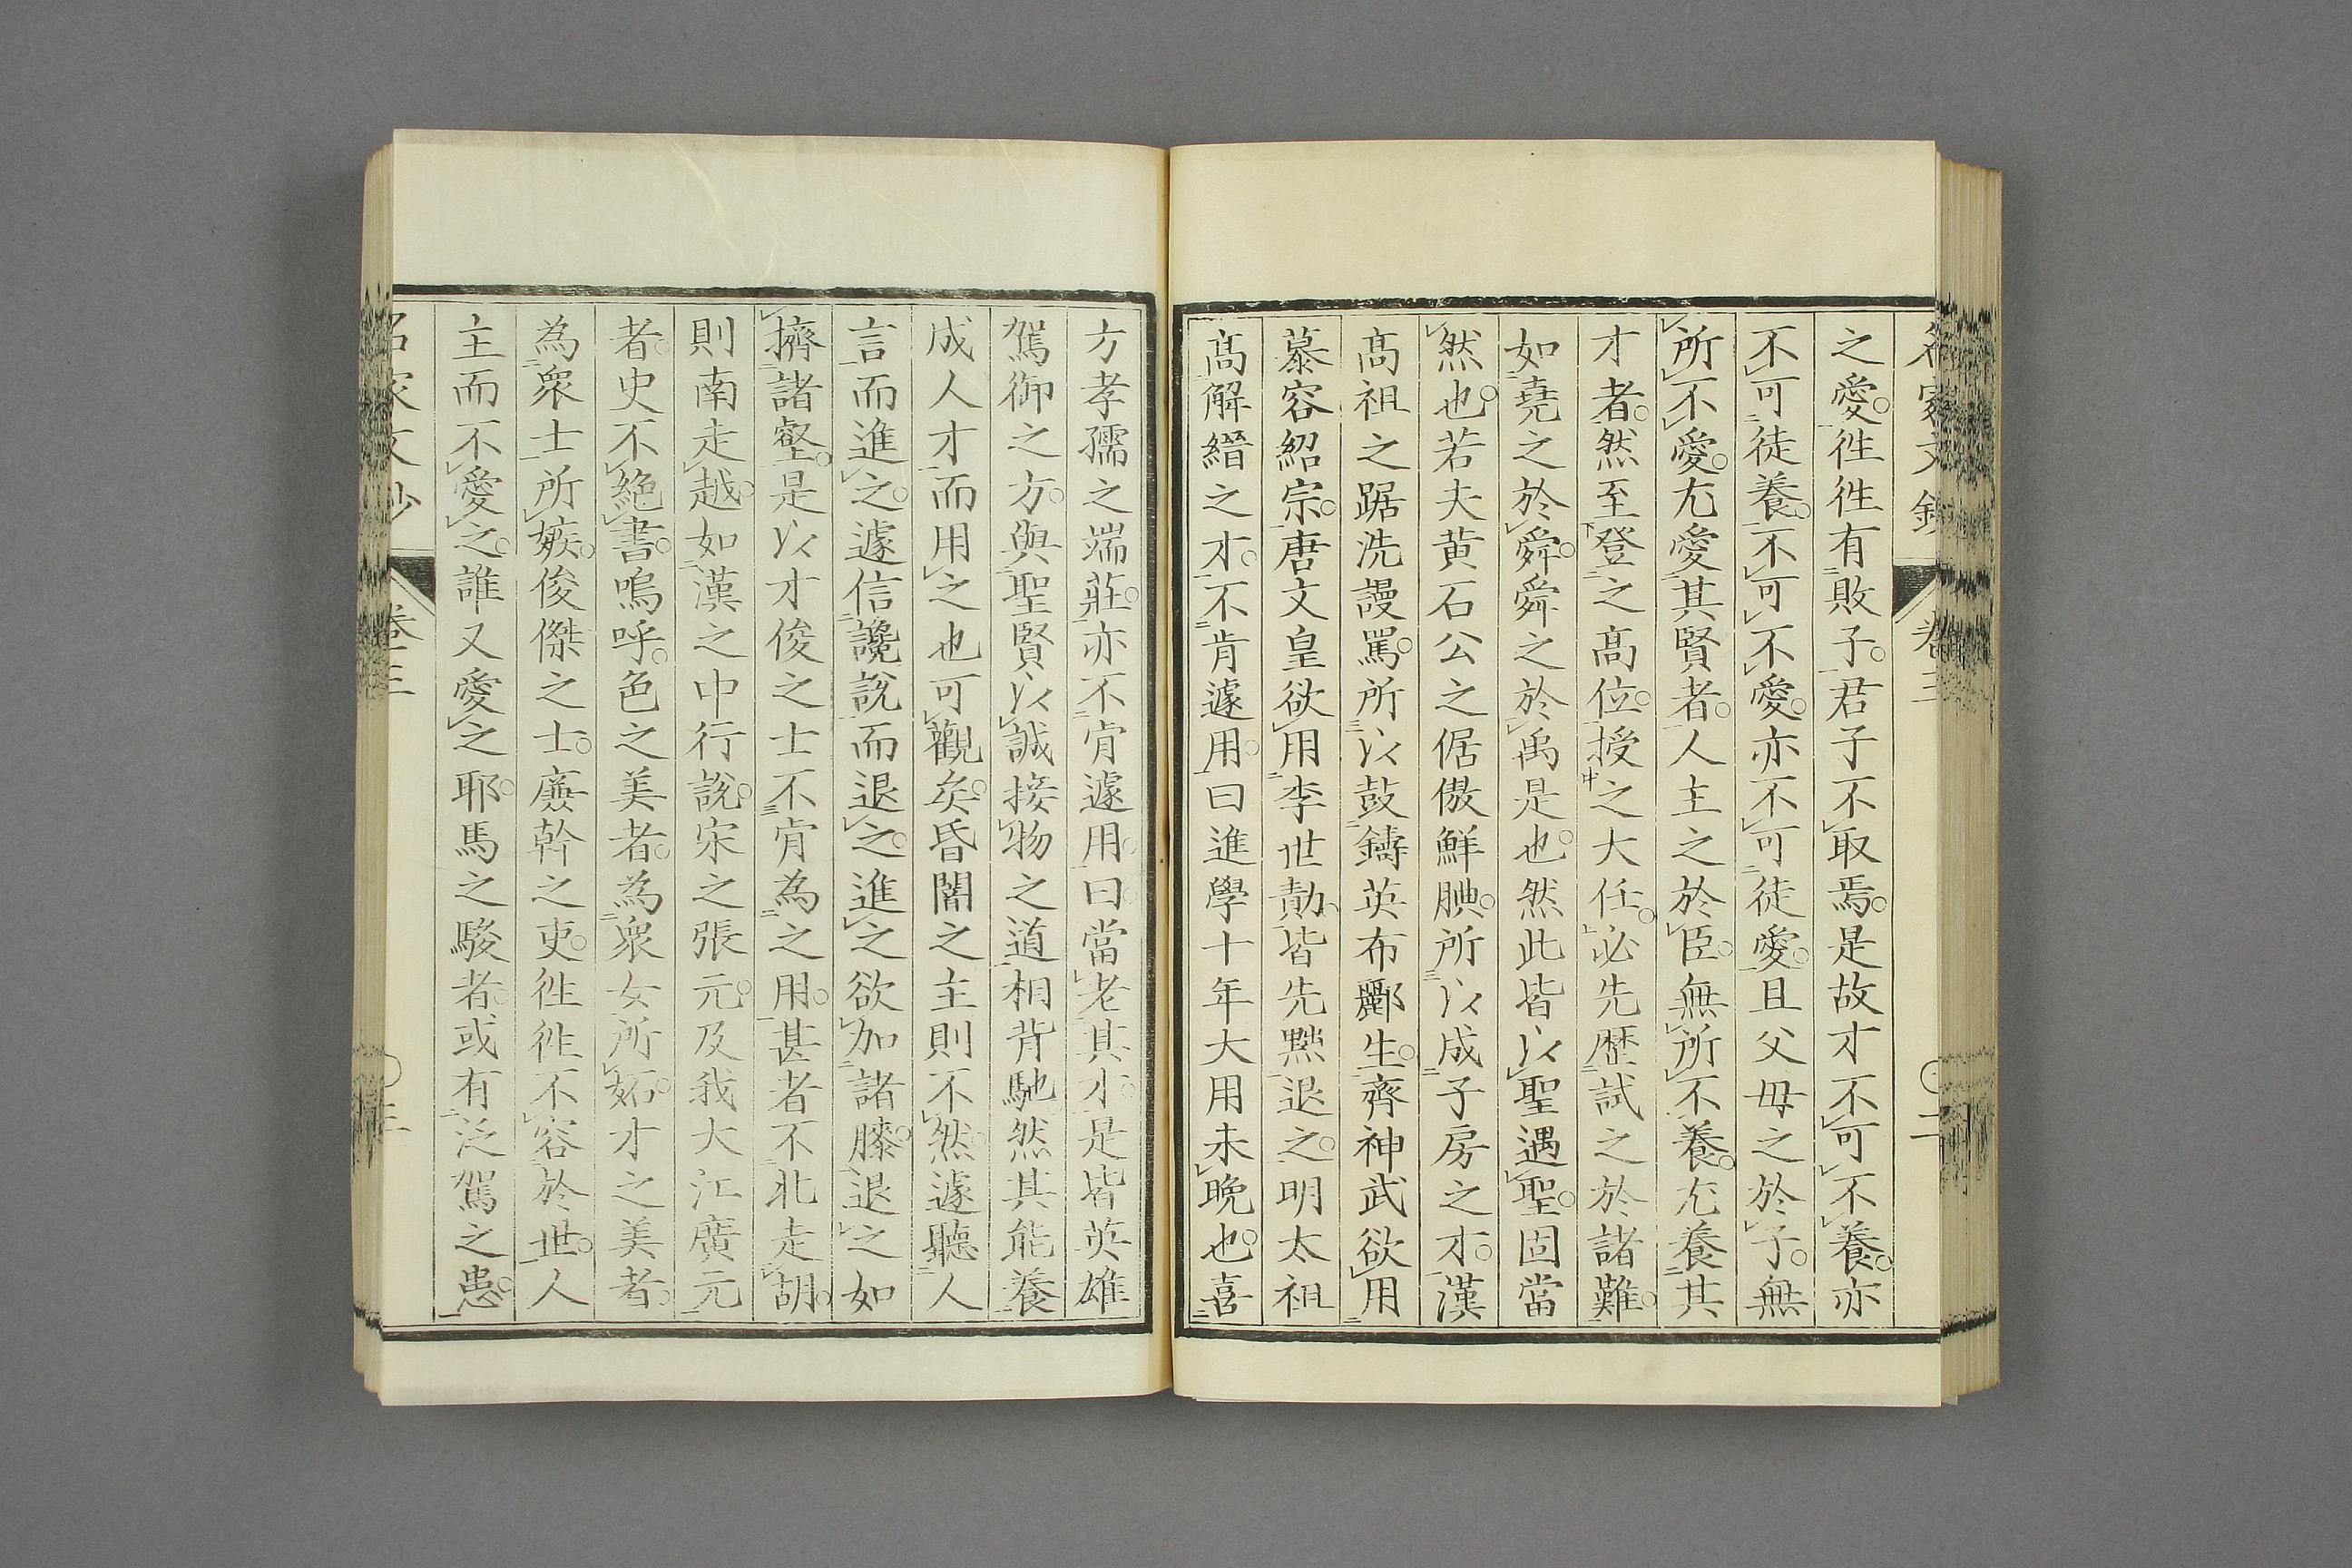 之愛。徃徃有敗子。君子不取焉。是故才不可不養。亦
不可徒養。不可不愛。亦不可徒愛。且父母之於子。無
所不愛。尤愛其賢者。人主之於臣。無所不養。尤養其
才者。然至登之髙位。授之大任。必先歷試之於諸難。
如堯之於舜。舜之於禹是也。然此皆以聖遇聖。固當
然也。若夫黄石公之倨傲鮮腆。所以成子房之才。漢
髙祖之踞洗謾罵。所以鼓鑄英布酈生。齊神武欲用
慕容紹宗。唐文皇欲用李世勣。皆先黙退之。明太祖
髙解縉之才。不肯遽用。曰進學十年大用未晩也。喜
方孝孺之端莊。亦不肯遽用。曰。當老其才。是皆英雄
駕御之方。與聖賢以誠接物之道相背馳。然其能養
成人才而用之也可觀矣。昏闇之主則不然。遽聽人
言而進之。遽信讒説而退之。進之欲加諸膝。退之如
擠諸壑。是以才俊之士不肯為之用。甚者不北走胡。
則南走越。如漢之中行説。宋之張元。及我大江廣元
者。史不絶書。嗚呼。色之美者。為衆女所妬。才之美者。
為衆士所嫉。俊傑之士。廉幹之吏。徃徃不容於世。人
主而不愛之。誰又愛之耶。馬之駿者。或有泛駕之患。
卷三